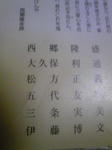 西郷隆盛
大久保利通
松方正義
五代友厚
三条実美
伊藤博文